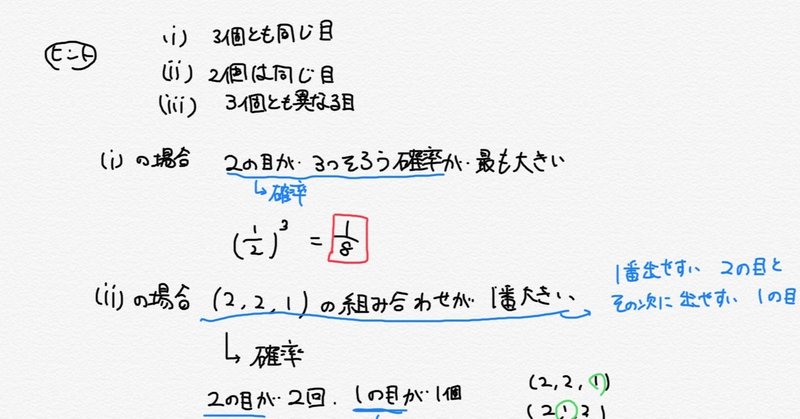 ヒント
(i) 3個とも同じ目
(ii) 2個は同じ目
(iii) 3個とも異なる目
(i) の場合 2の目が 3つそろう確率が 最も大きい
↳ 確率
(1/2)^3 = 1/8
(ii) の場合 (2, 2, 1) の組み合わせが 1番大きい
1番出やすい 2の目と
その次に 出やすい 1の目
↳ 確率
2の目が 2回、1の目が 1個
(2, 2, 1)
(2, 1, 2)